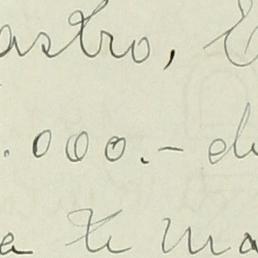 astro, E
.000.- de
a te ma